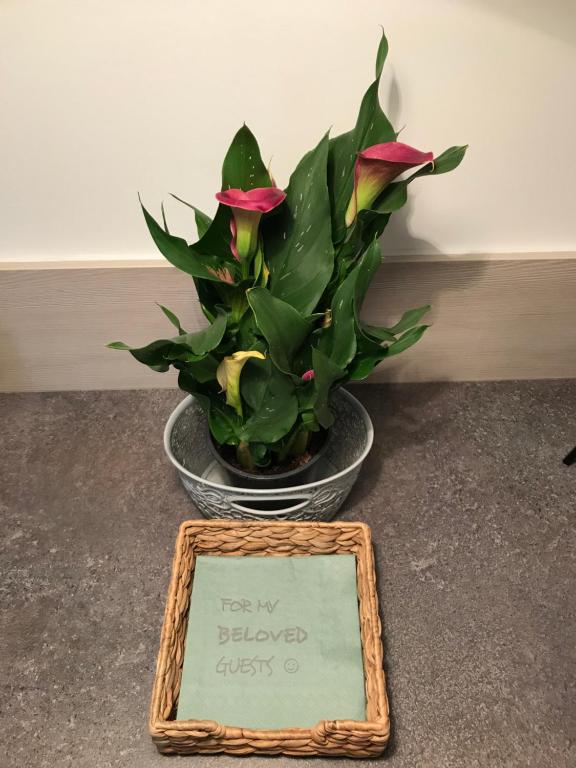 FOR MY
BELOVED
GUESTS ☺